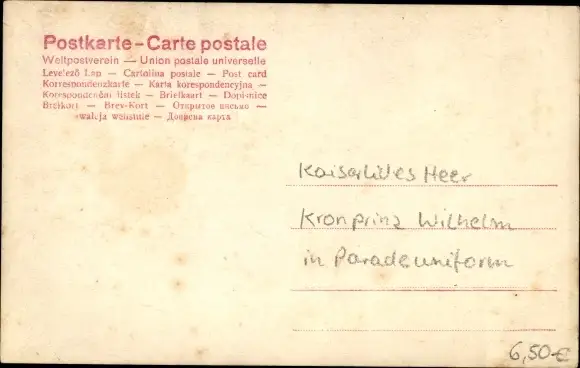 Postkarte – Carte postale
Weltpostverein — Union postale universelle
Levelező Lap — Cartolina postale — Post card
Korrespondenzkarte — Karta korespondencyjna —
Korespondenční lístek — Briefkaart — Dopisnice
Brefkort — Brev-Kort — Открытое письмо —
Дописна карта
Kaiserliches Heer
Kronprinz Wilhelm
in Paradeuniform
6,50 €